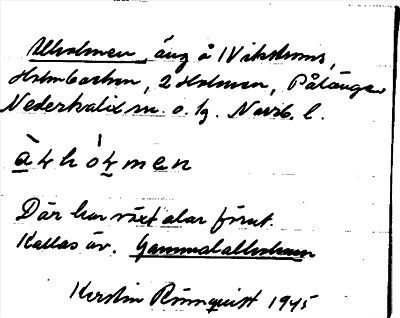 Alholmen, äng å 1 Vikströms,
Holmbacken, 2 Holmen, Pålänge
Nederkalix sn. o. hg. Norrb. l.
Där har växt alar förut.
Kallas äv. Gammalalholmen
Kerstin Rönnquist 1945